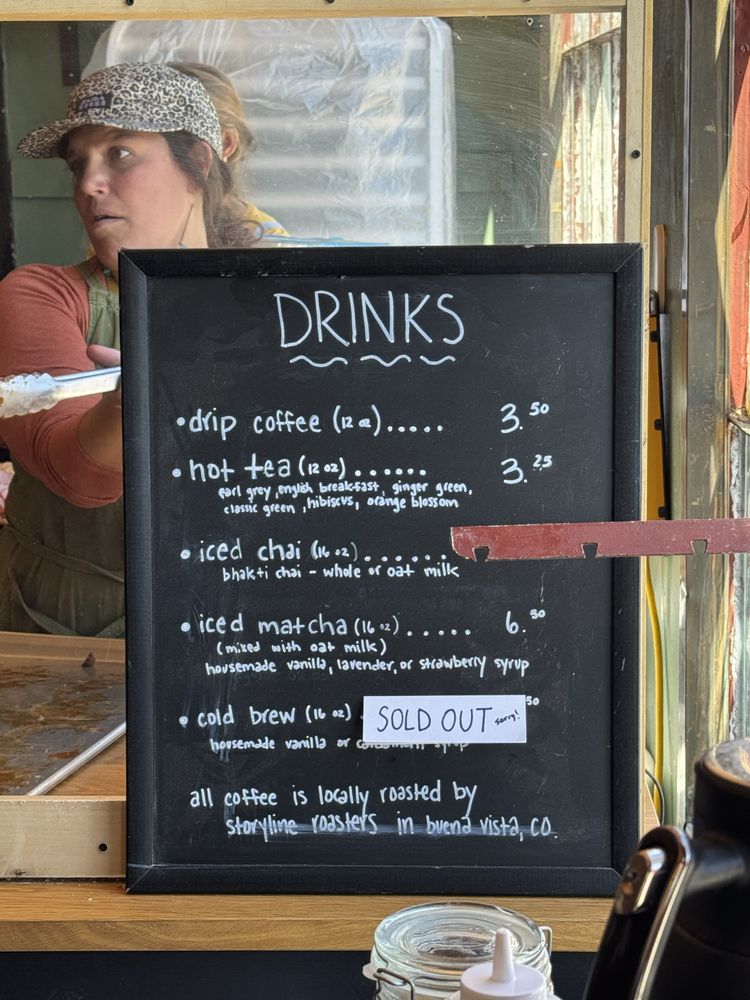 DRINKS
• drip coffee (12 oz)..... 3.50
• hot tea (12 oz)...... 3.25
earl grey, english breakfast, ginger green,
classic green, hibiscus, orange blossom
• iced chai (16 oz)......
bhakti chai - whole or oat milk
• iced matcha (16 oz)..... 6.50
(mixed with oat milk)
housemade vanilla, lavender, or strawberry syrup
• cold brew (16 oz) 50
SOLD OUT sorry!
housemade vanilla or syrup
all coffee is locally roasted by
storyline roasters in buena vista, co.